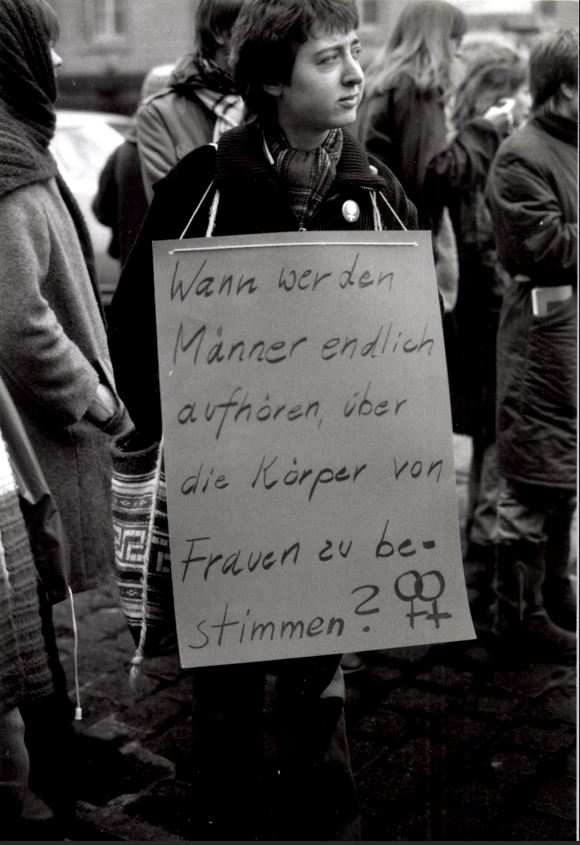 Wann werden
Männer endlich
aufhören, über
die Körper von
Frauen zu be-
stimmen?